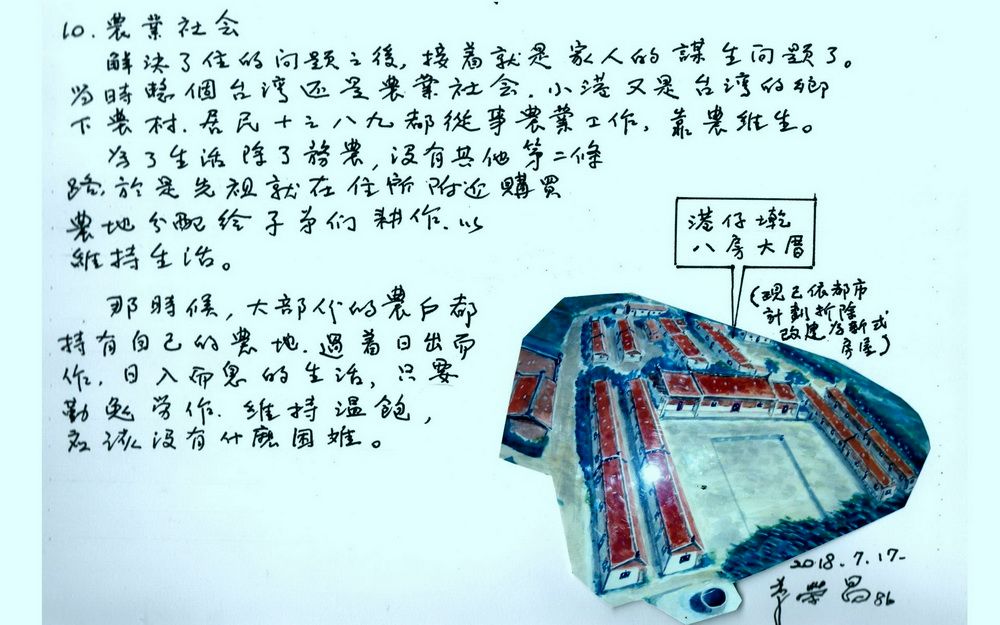 10. 農業社会
解決了住的问题之後, 接着就是家人的謀生问题了。
当時整個台湾还是農業社会. 小港又是台湾的鄉
下農村. 居民十之八九都從事農業工作, 靠農維生。
為了生活除了務農, 没有其他第二條
路. 於是先祖就在住所附近購買
農地分配给子弟们耕作. 以
維持生活。
那時候, 大部份的農户都
持有自己的農地. 過着日出而
作, 日入而息的生活, 只要
勤勉労作. 維持温飽,
应該没有什麽困难。
港仔墘
八房大厝
(現已依都市
計劃拆除
改建為新式
房屋)
2018.7.17-
榮昌 86